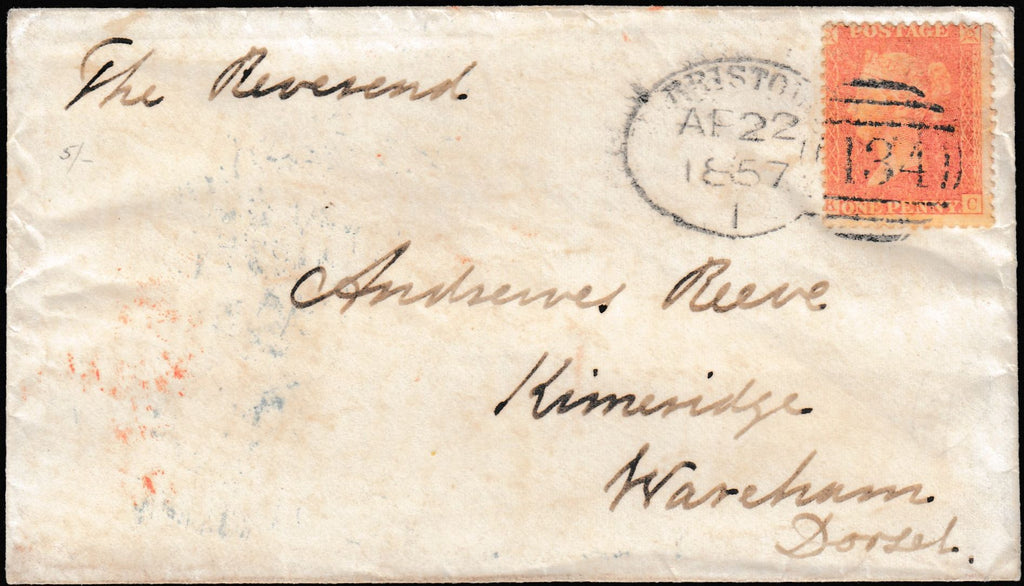 The Reverend
5/-
Andrewes Reeve
Kimeridge
Wareham
Dorset.
BRISTOL
AP 22
1857
1
134
POSTAGE
ONE PENNY
K C